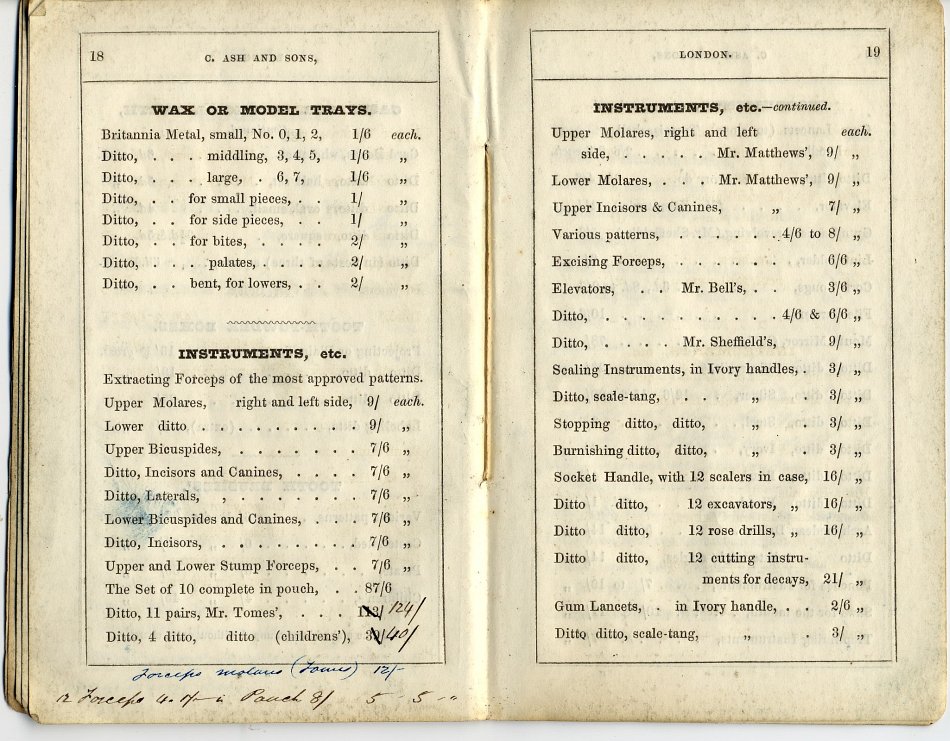 18 C. ASH AND SONS,
WAX OR MODEL TRAYS.
Britannia Metal, small, No. 0, 1, 2, 1/6 each.
Ditto, . . . middling, 3, 4, 5, 1/6 „
Ditto, . . . large, . 6, 7, 1/6 „
Ditto, . . for small pieces, . . 1/ „
Ditto, . . for side pieces, . . 1/ „
Ditto, . . for bites, . . . . 2/ „
Ditto, . . . palates, . . . . 2/ „
Ditto, . . bent, for lowers, . . 2/ „
INSTRUMENTS, etc.
Extracting Forceps of the most approved patterns.
Upper Molares, right and left side, 9/ each.
Lower ditto . . . . . . . . 9/ „
Upper Bicuspides, . . . . . . 7/6 „
Ditto, Incisors and Canines, . . . . 7/6 „
Ditto, Laterals, , . . . . . . 7/6 „
Lower Bicuspides and Canines, . . . 7/6 „
Ditto, Incisors, . . . . . . . 7/6 „
Upper and Lower Stump Forceps, . . 7/6 „
The Set of 10 complete in pouch, . . 87/6
Ditto, 11 pairs, Mr. Tomes', . . . 124/
Ditto, 4 ditto, ditto (childrens'), 40/
Forceps molares (Tomes) 12/-
12 Forceps in Pouch 8/ 5 - 5 - "
LONDON. 19
INSTRUMENTS, etc.—continued.
Upper Molares, right and left each.
side, . . . . . Mr. Matthews', 9/ „
Lower Molares, . . . Mr. Matthews', 9/ „
Upper Incisors & Canines, „ 7/ „
Various patterns, . . . . . . 4/6 to 8/ „
Excising Forceps, . . . . . . 6/6 „
Elevators, . . . Mr. Bell's, . . 3/6 „
Ditto, . . . . . . . . 4/6 & 6/6 „
Ditto, . . . . Mr. Sheffield's, 9/ „
Scaling Instruments, in Ivory handles, . 3/ „
Ditto, scale-tang, . . „ . . 3/ „
Stopping ditto, ditto, „ 3/ „
Burnishing ditto, ditto, „ 3/ „
Socket Handle, with 12 scalers in case, 16/ „
Ditto ditto, 12 excavators, „ 16/ „
Ditto ditto, 12 rose drills, „ 16/ „
Ditto ditto, 12 cutting instru-
ments for decays, 21/ „
Gum Lancets, . in Ivory handle, . . 2/6 „
Ditto ditto, scale-tang, „ 3/ „